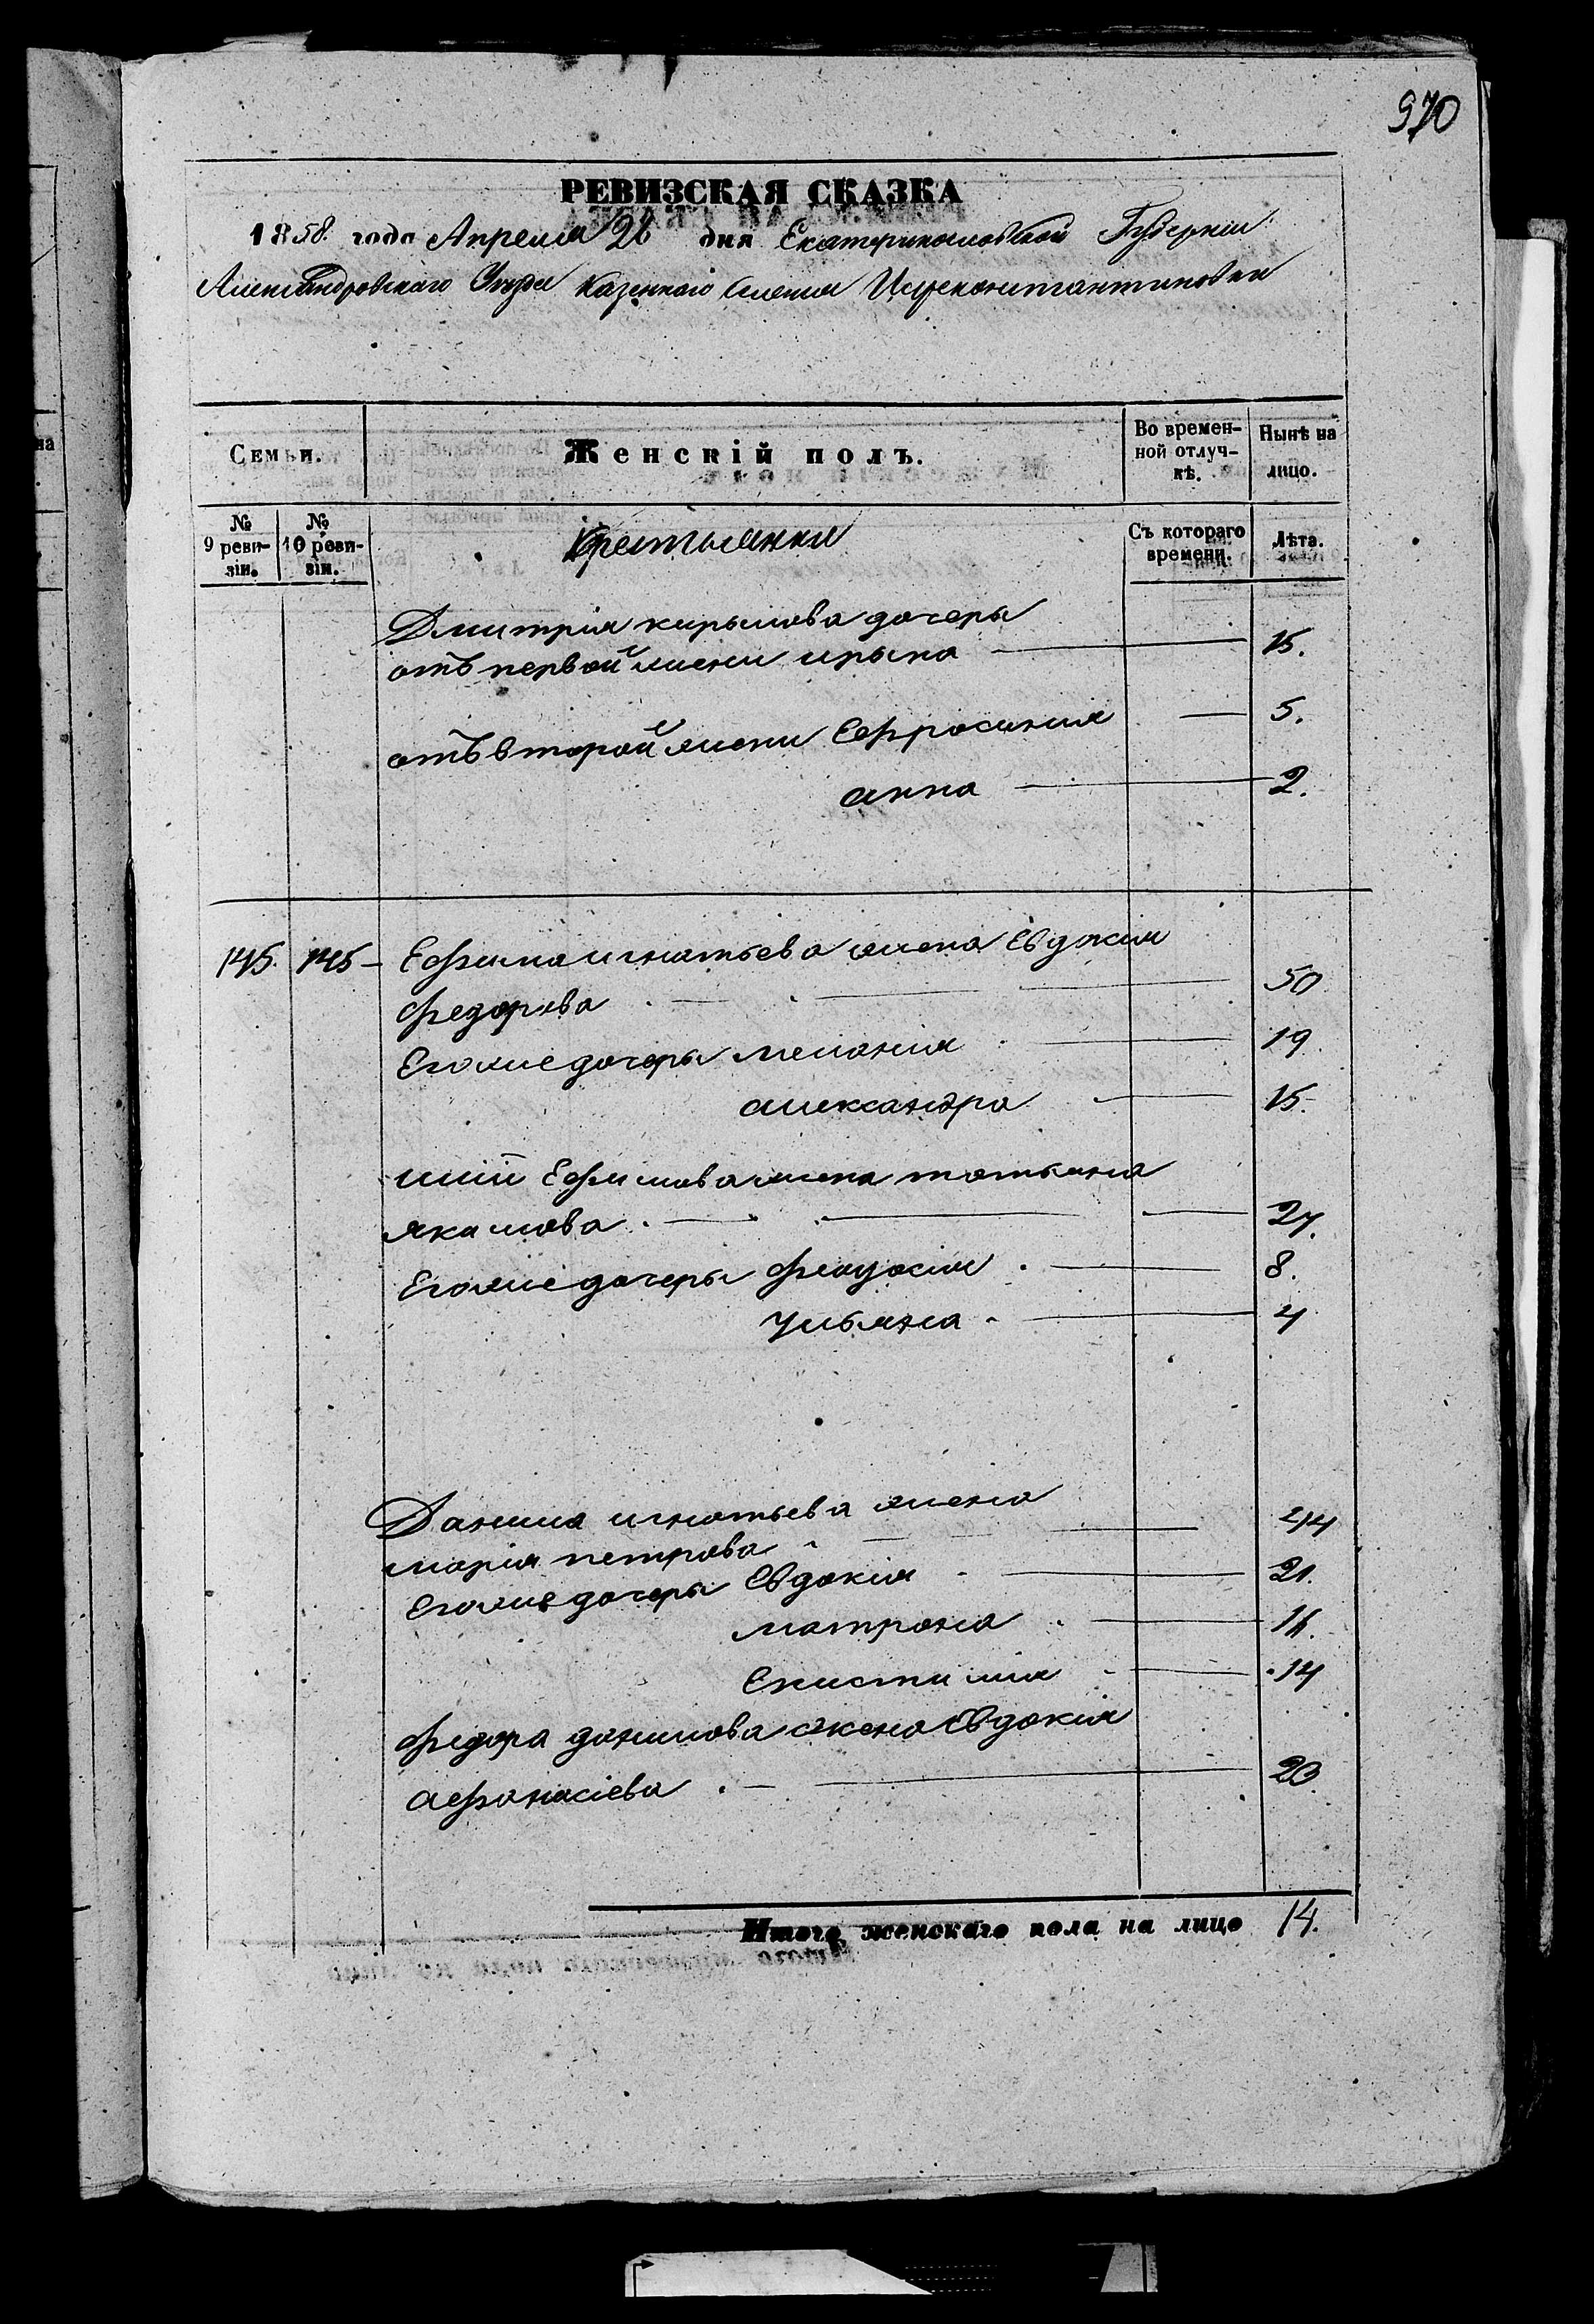 970
РЕВИЗСКАЯ СКАЗКА
1858. года Апреля 28 дня Екатеринославской Губернии
Александровского Уезда Казенного Селения Цареконстантиновки
Семьи. Женскій полъ. Во времен-ной отлуч-кѣ. Нынѣ на лицо.
№ 9 реви-зіи. № 10 реви-зіи. Крестьянки Съ котораго времени. Лѣта.
Дмитрія кирылова дочеры
отъ первой жены ирына 15.
отъ второй жены Ефросинія 5.
анна 2.
145. 145 Ефима игнатьева жена Евдокія
федорова 50
Егоже дочеры меланія 19
александра 15.
Ефимова жена татьяна
якимова 27.
Егоже дочеры феодосія 8.
ульяна 4
Данила игнатьева жена
марія петрова 44
Егоже дочеры Евдокія 21.
матрона 16.
Екистимія 14
федора данилова жена Евдокія
афанасіева 20
Итого женскаго пола на лицо 14.